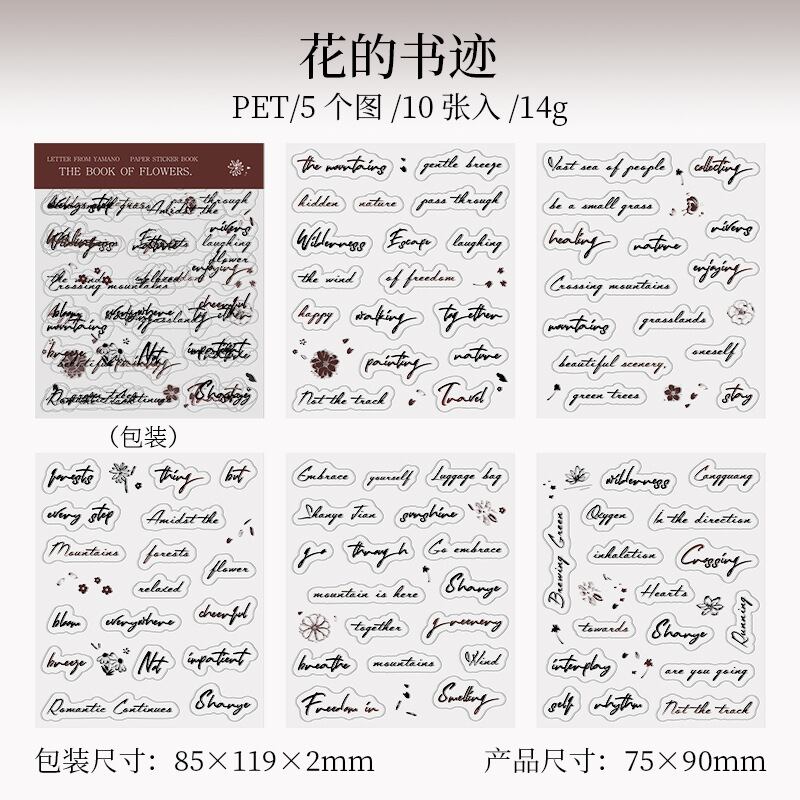 花的书迹
PET/5 个图 /10 张入 /14g
LETTER FROM YAMANO PAPER STICKER BOOK
THE BOOK OF FLOWERS.
(包装)
the mountains gentle breeze
hidden nature pass through
Wilderness Escape laughing
the wind of freedom
happy walking together
painting nature
Not the track Travel
Vast sea of people collecting
be a small grass
healing nature rivers
enjoying
Crossing mountains
mountains grasslands
oneself
beautiful scenery.
green trees stay
forests thing but
every step Amidst the
Mountains forests
flower
relaxed
bloom everywhere cheerful
breeze Not impatient
Romantic Continues Shanye
Embrace yourself Luggage bag
Shanye Jian sunshine
go through Go embrace
mountain is here Shanye
together greenery
breathe mountains Wind
Freedom in Smelling
wilderness Cangguang
Brewing Green Oxygen In the direction
inhalation Crossing
Hearts
towards Shanye Running
interplay are you going
self rhythm Not the track
包装尺寸：85×119×2mm
产品尺寸：75×90mm